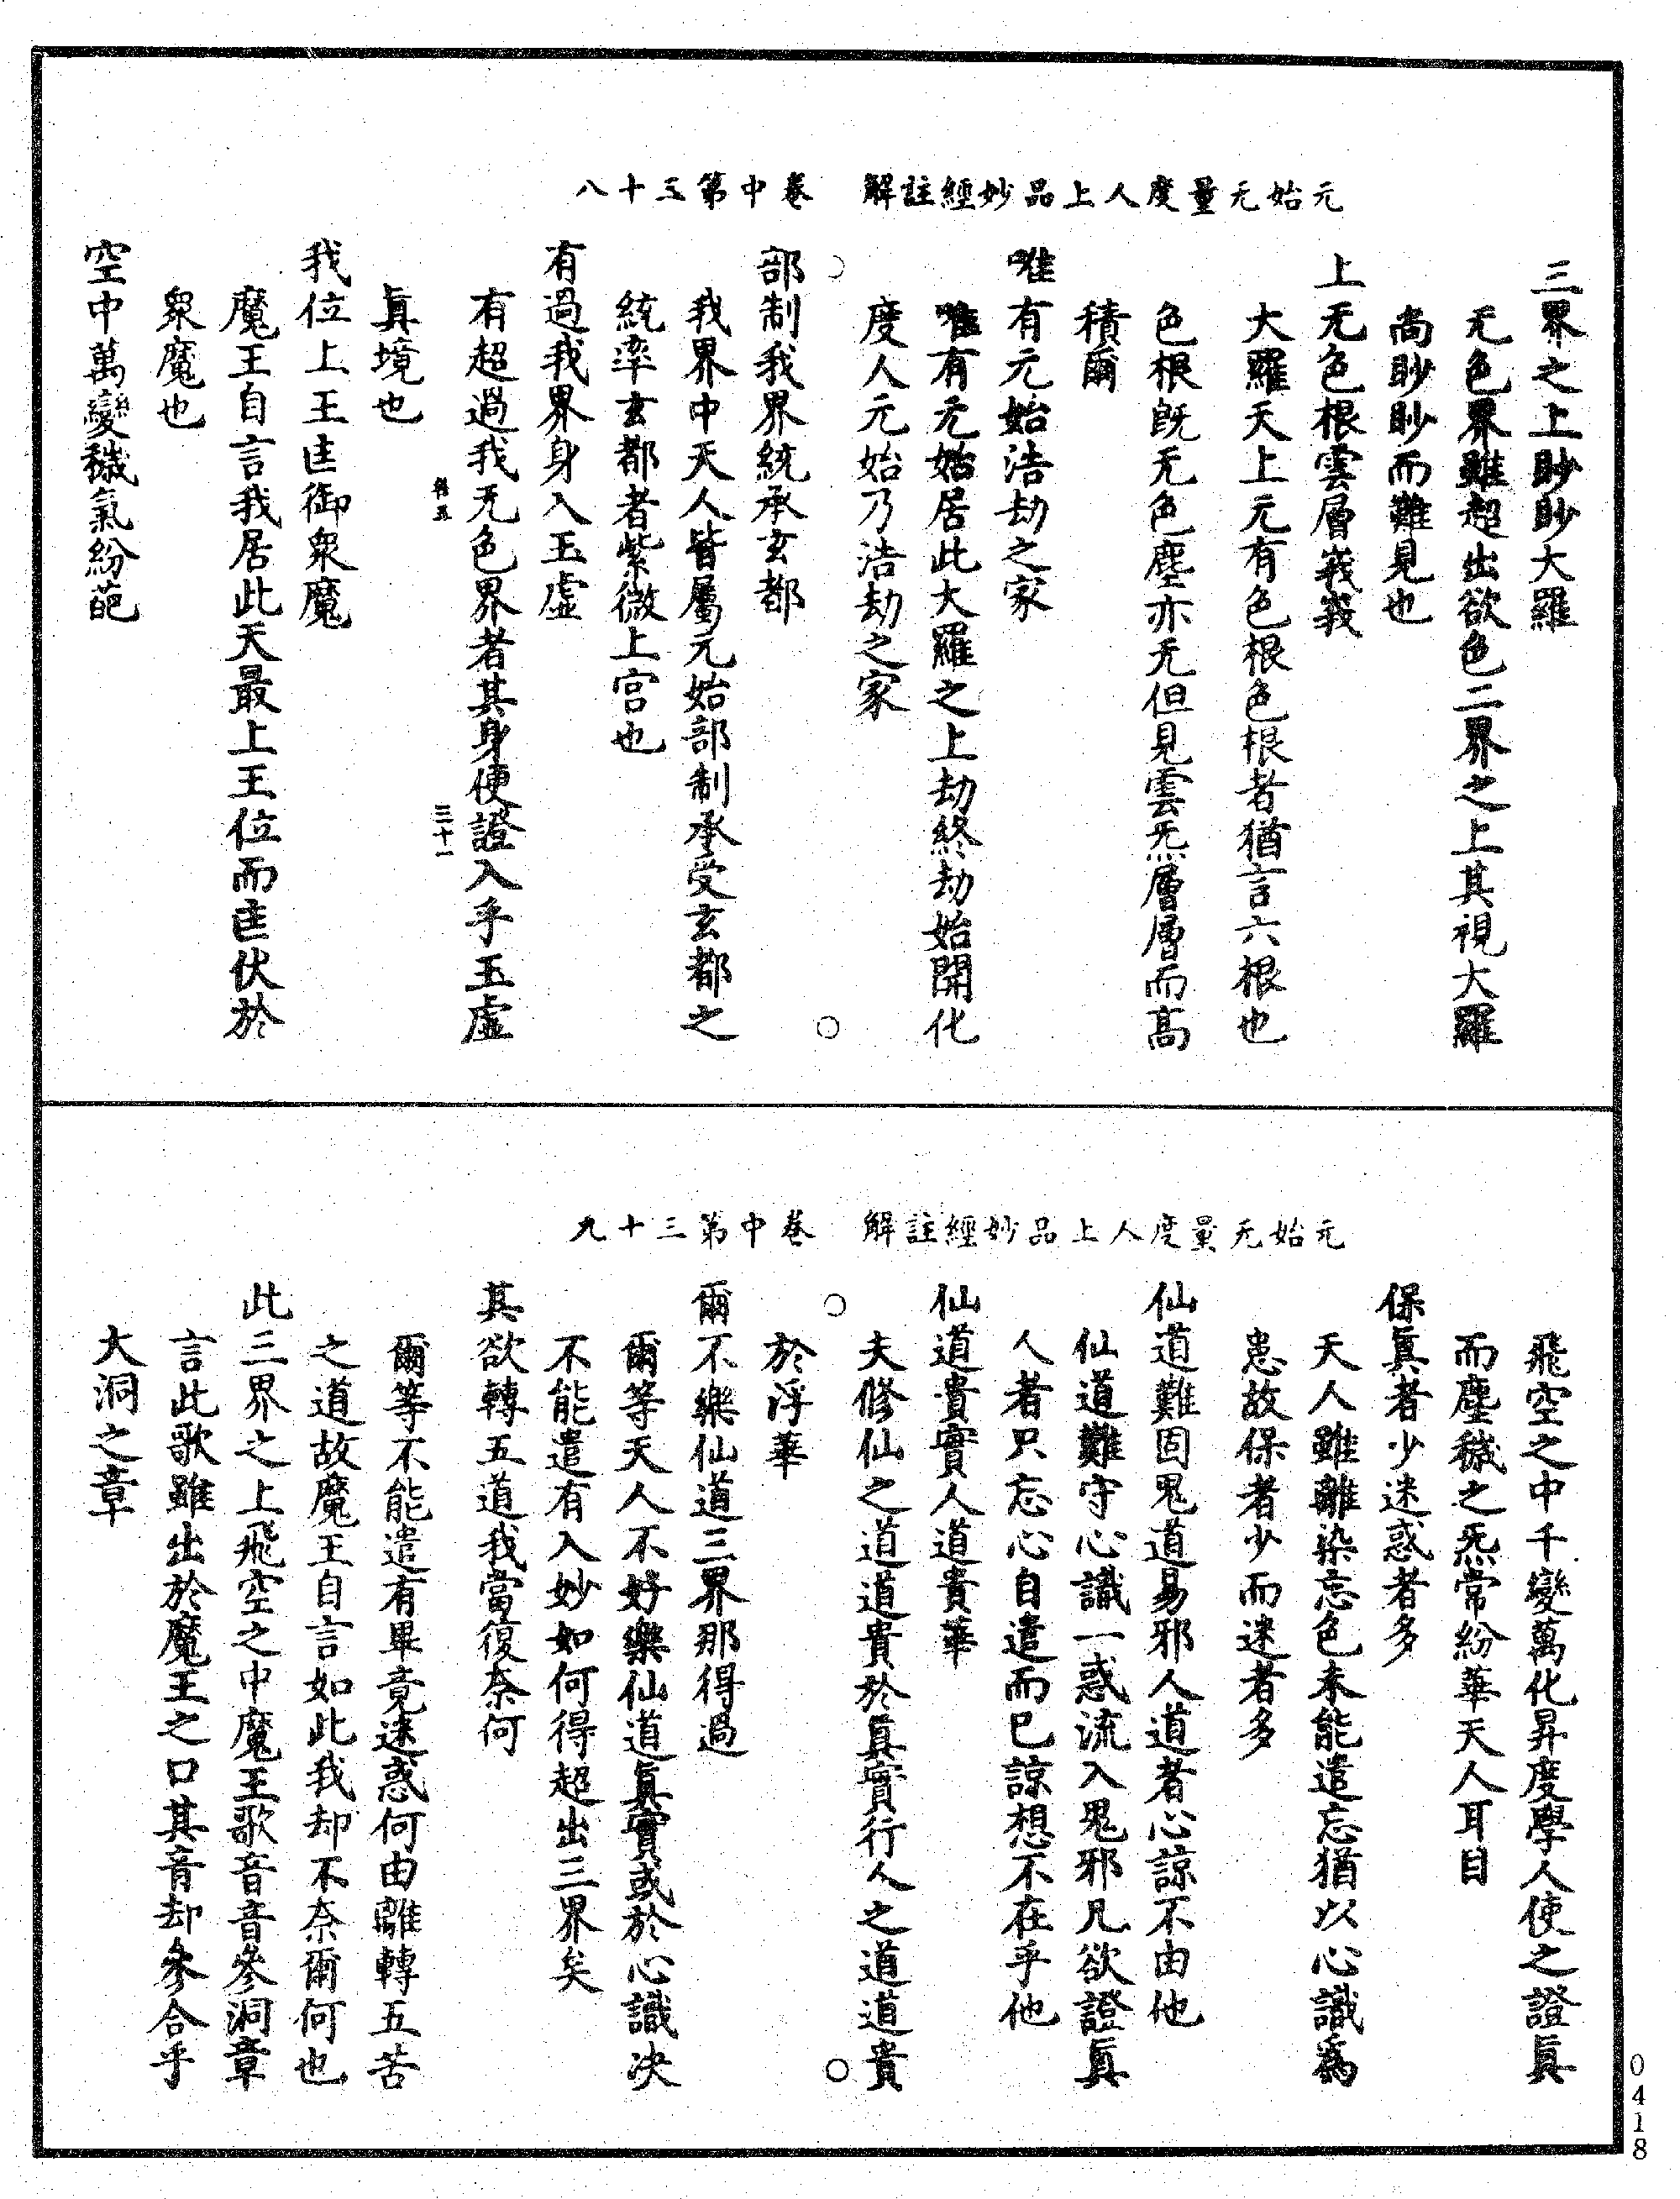 元始无量度人上品妙經註解　卷中第三十八
三界之上眇眇大羅
无色界雖超出欲色二界之上其視大羅
尚眇眇而難見也
上无色根雲層峩峩
大羅天上元有色根色根者猶言六根也
色根旣无色塵亦无但見雲炁層層而高
積爾
唯有元始浩劫之家
唯有元始居此大羅之上劫終劫始開化
度人元始乃浩劫之家
部制我界統承玄都
我界中天人皆屬元始部制承受玄都之
統率玄都者紫微上宮也
有過我界身入玉虛
有超過我无色界者其身便證入乎玉虛
三十一
眞境也
我位上王匡御衆魔
魔王自言我居此天最上王位而匡伏於
衆魔也
空中萬變穢氣紛葩
元始无量度人上品妙經註解　卷中第三十九
飛空之中千變萬化昇度學人使之證眞
而塵穢之炁常紛華天人耳目
保眞者少迷惑者多
天人雖離染忘色未能遣忘猶以心識爲
患故保者少而迷者多
仙道難固鬼道易邪人道者心諒不由他
仙道難守心識一惑流入鬼邪凡欲證眞
人者只忘心自遣而已諒想不在乎他
仙道貴實人道貴華
夫修仙之道道貴於眞實行人之道道貴
於浮華
爾不樂仙道三界那得過
爾等天人不好樂仙道眞實或於心識决
不能遣有入妙如何得超出三界矣
其欲轉五道我當復奈何
爾等不能遣有畢竟迷惑何由離轉五苦
之道故魔王自言如此我却不奈爾何也
此三界之上飛空之中魔王歌音音參洞章
言此歌雖出於魔王之口其音却參合乎
大洞之章
0418